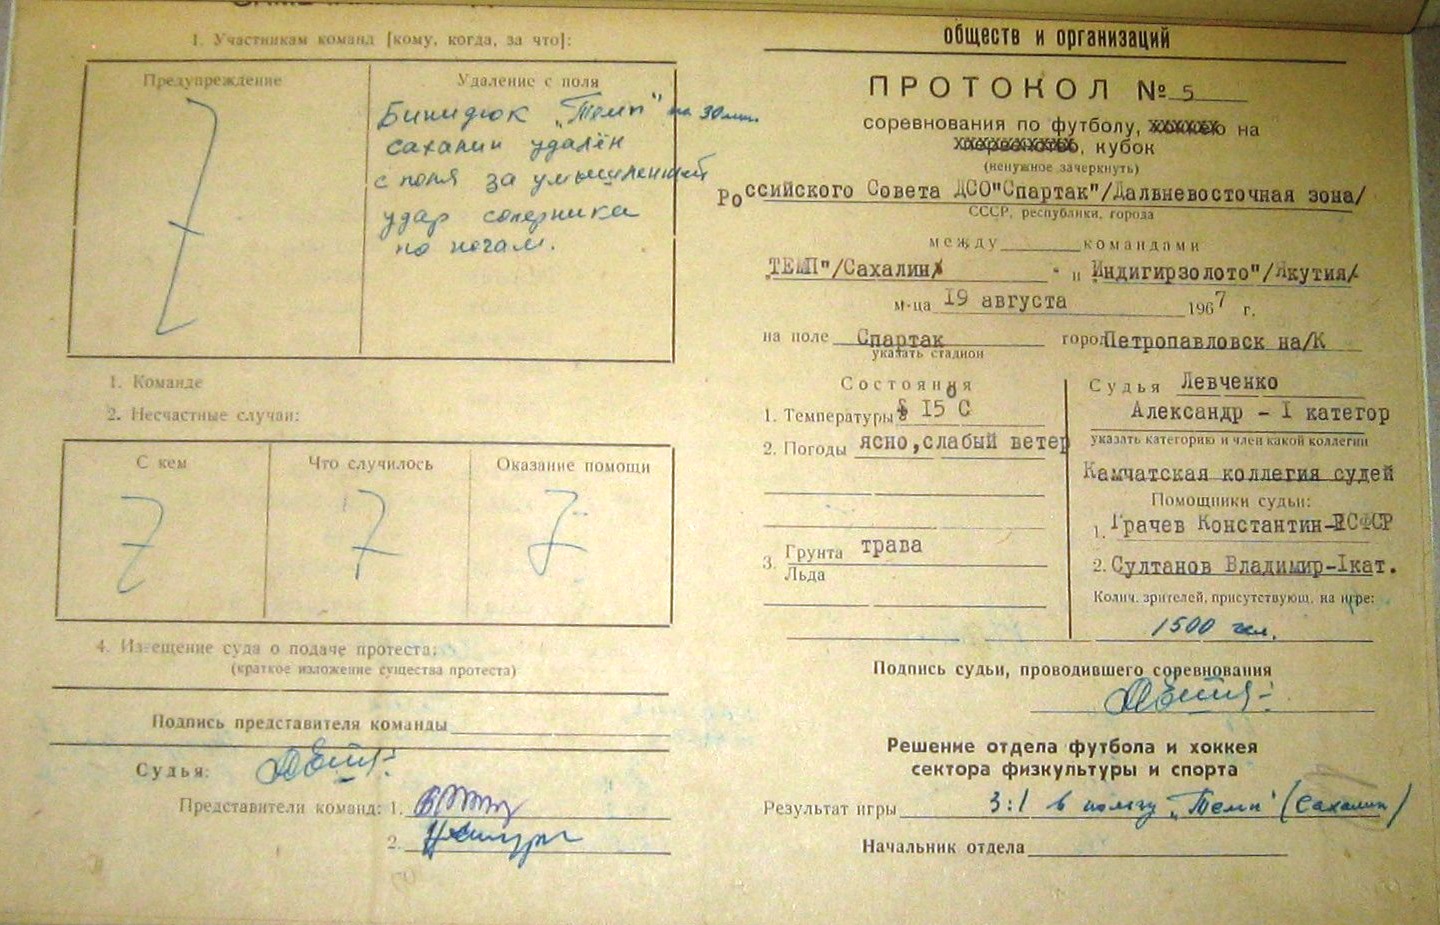 1. Участникам команд [кому, когда, за что]:
Предупреждение
Удаление с поля
"Темп" на 30 мин.
сахалин удалён
с поля за умышленный
удар соперника
по ногам.
1. Команде
2. Несчастные случаи:
С кем
Что случилось
Оказание помощи
4. Извещение суда о подаче протеста;
(краткое изложение существа протеста)
Подпись представителя команды
Судья:
Представители команд: 1.
2.
обществ и организаций
ПРОТОКОЛ № 5
соревнования по футболу, хоккею на
первенство, кубок
(ненужное зачеркнуть)
Российского Совета ДСО"Спартак"/Дальневосточная зона/
СССР, республики, города
между командами
"ТЕМП"/Сахалин/ и "Индигирзолото"/Якутия/
м-ца 19 августа 1967 г.
на поле Спартак город Петропавловск на/К
указать стадион
Состояния
1. Температуры 15°С
2. Погоды ясно,слабый ветер
3. Грунта трава
Льда
Судья Левченко
Александр - I категор
указать категорию и член какой коллегии
Камчатская коллегия судей
Помощники судьи:
1. Грачев Константин-РСФСР
2. Султанов Владимир-Iкат.
Колич. зрителей, присутствующ. на игре:
1500 чел.
Подпись судьи, проводившего соревнования
Решение отдела футбола и хоккея
сектора физкультуры и спорта
Результат игры 3:1 в пользу "Темп" (Сахалин)
Начальник отдела